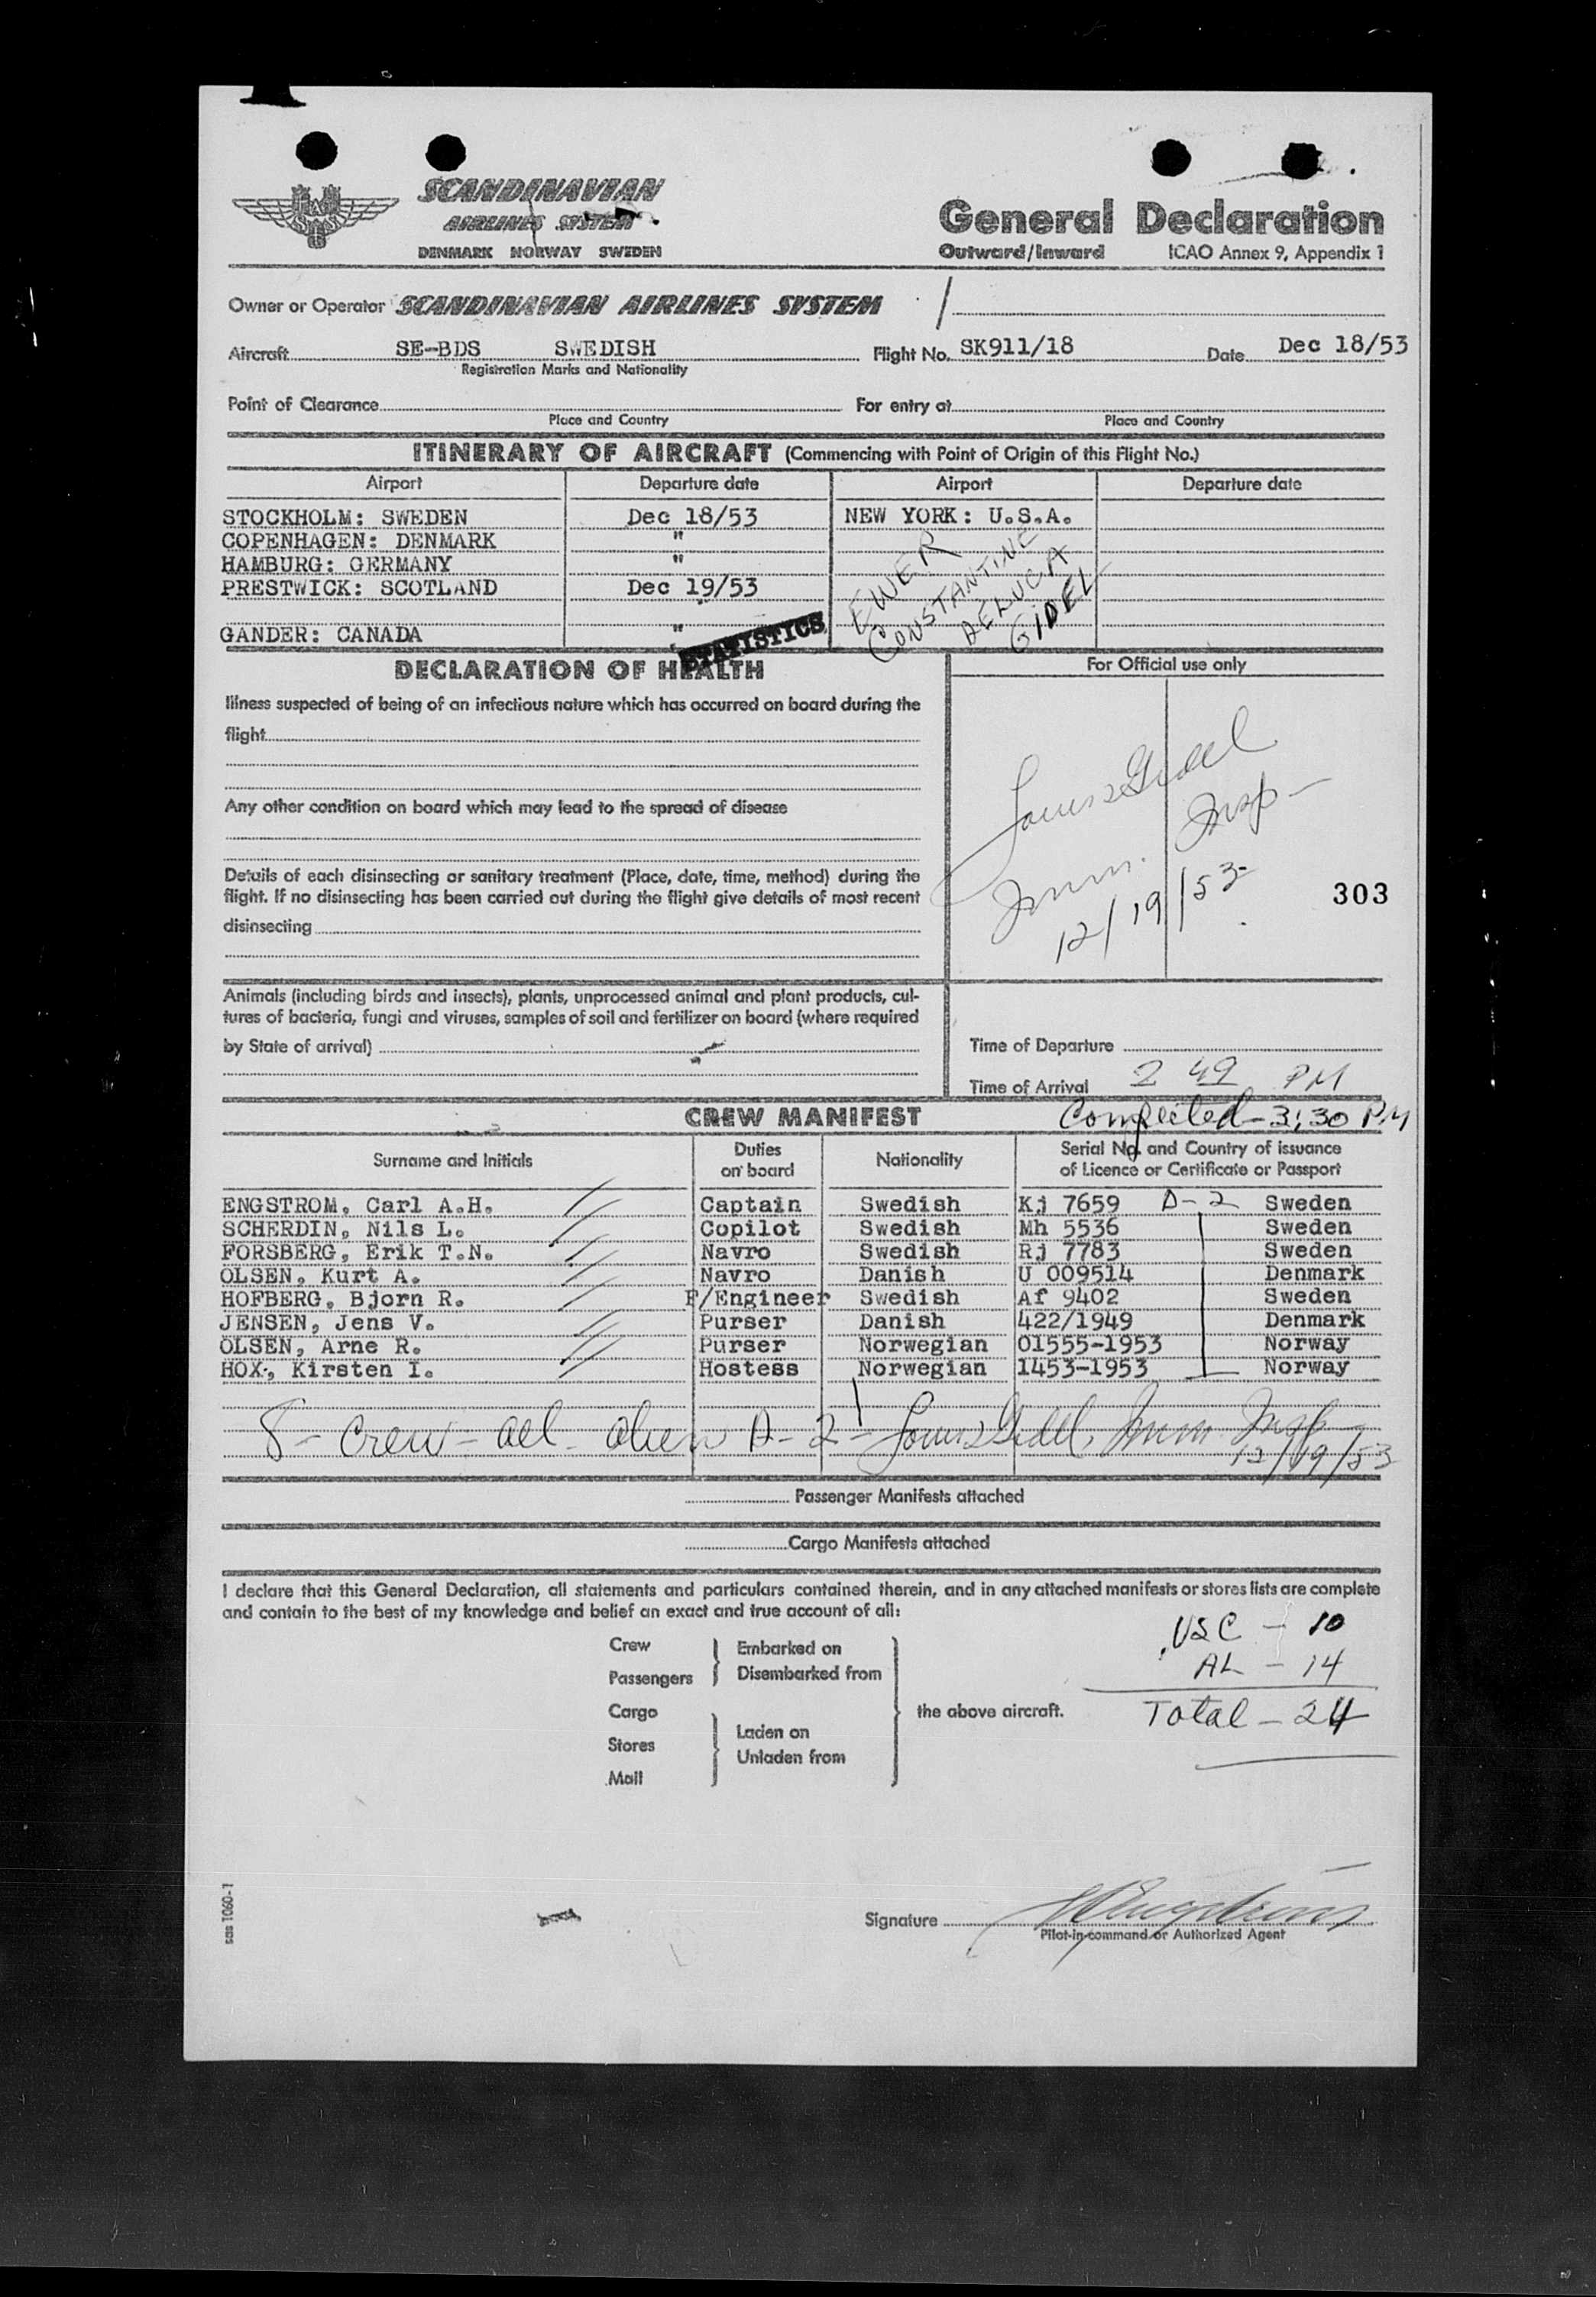 SCANDINAVIAN
AIRLINES SYSTEM
DENMARK NORWAY SWEDEN
General Declaration
Outward/Inward ICAO Annex 9, Appendix 1
Owner or Operator SCANDINAVIAN AIRLINES SYSTEM
Aircraft SE-BDS SWEDISH Flight No. SK911/18 Date Dec 18/53
Registration Marks and Nationality
Point of Clearance For entry at
Place and Country Place and Country
ITINERARY OF AIRCRAFT (Commencing with Point of Origin of this Flight No.)
Airport Departure date Airport Departure date
STOCKHOLM: SWEDEN Dec 18/53 NEW YORK: U.S.A.
COPENHAGEN: DENMARK "
HAMBURG: GERMANY "
PRESTWICK: SCOTLAND Dec 19/53
GANDER: CANADA "
EWER
CONSTANTINE
DELUCA
GIDEL
STATISTICS
DECLARATION OF HEALTH
For Official use only
Illness suspected of being of an infectious nature which has occurred on board during the
flight
Any other condition on board which may lead to the spread of disease
Details of each disinsecting or sanitary treatment (Place, date, time, method) during the
flight. If no disinsecting has been carried out during the flight give details of most recent
disinsecting
Louis Gidel
Imm. Insp
12/19/53
303
Animals (including birds and insects), plants, unprocessed animal and plant products, cul-
tures of bacteria, fungi and viruses, samples of soil and fertilizer on board (where required
by State of arrival)
Time of Departure
Time of Arrival 2 49 PM
CREW MANIFEST Completed-3:30 PM
Surname and Initials Duties on board Nationality Serial No. and Country of issuance of Licence or Certificate or Passport
ENGSTROM, Carl A.H. Captain Swedish Kj 7659 D-2 Sweden
SCHERDIN, Nils L. Copilot Swedish Mh 5536 Sweden
FORSBERG, Erik T.N. Navro Swedish Rj 7783 Sweden
OLSEN, Kurt A. Navro Danish U 009514 Denmark
HOFBERG, Bjorn R. F/Engineer Swedish Af 9402 Sweden
JENSEN, Jens V. Purser Danish 422/1949 Denmark
OLSEN, Arne R. Purser Norwegian 01555-1953 Norway
HOX, Kirsten I. Hostess Norwegian 1453-1953 Norway
8 - Crew - all - alien D-2 - Louis Gidel, Imm Insp
12/19/53
Passenger Manifests attached
Cargo Manifests attached
I declare that this General Declaration, all statements and particulars contained therein, and in any attached manifests or stores lists are complete
and contain to the best of my knowledge and belief an exact and true account of all:
Crew Embarked on
Passengers Disembarked from
Cargo the above aircraft.
Laden on
Stores
Unladen from
Mail
USC - 10
AL - 14
Total - 24
sas 1060-1
Signature
Pilot-in-command or Authorized Agent